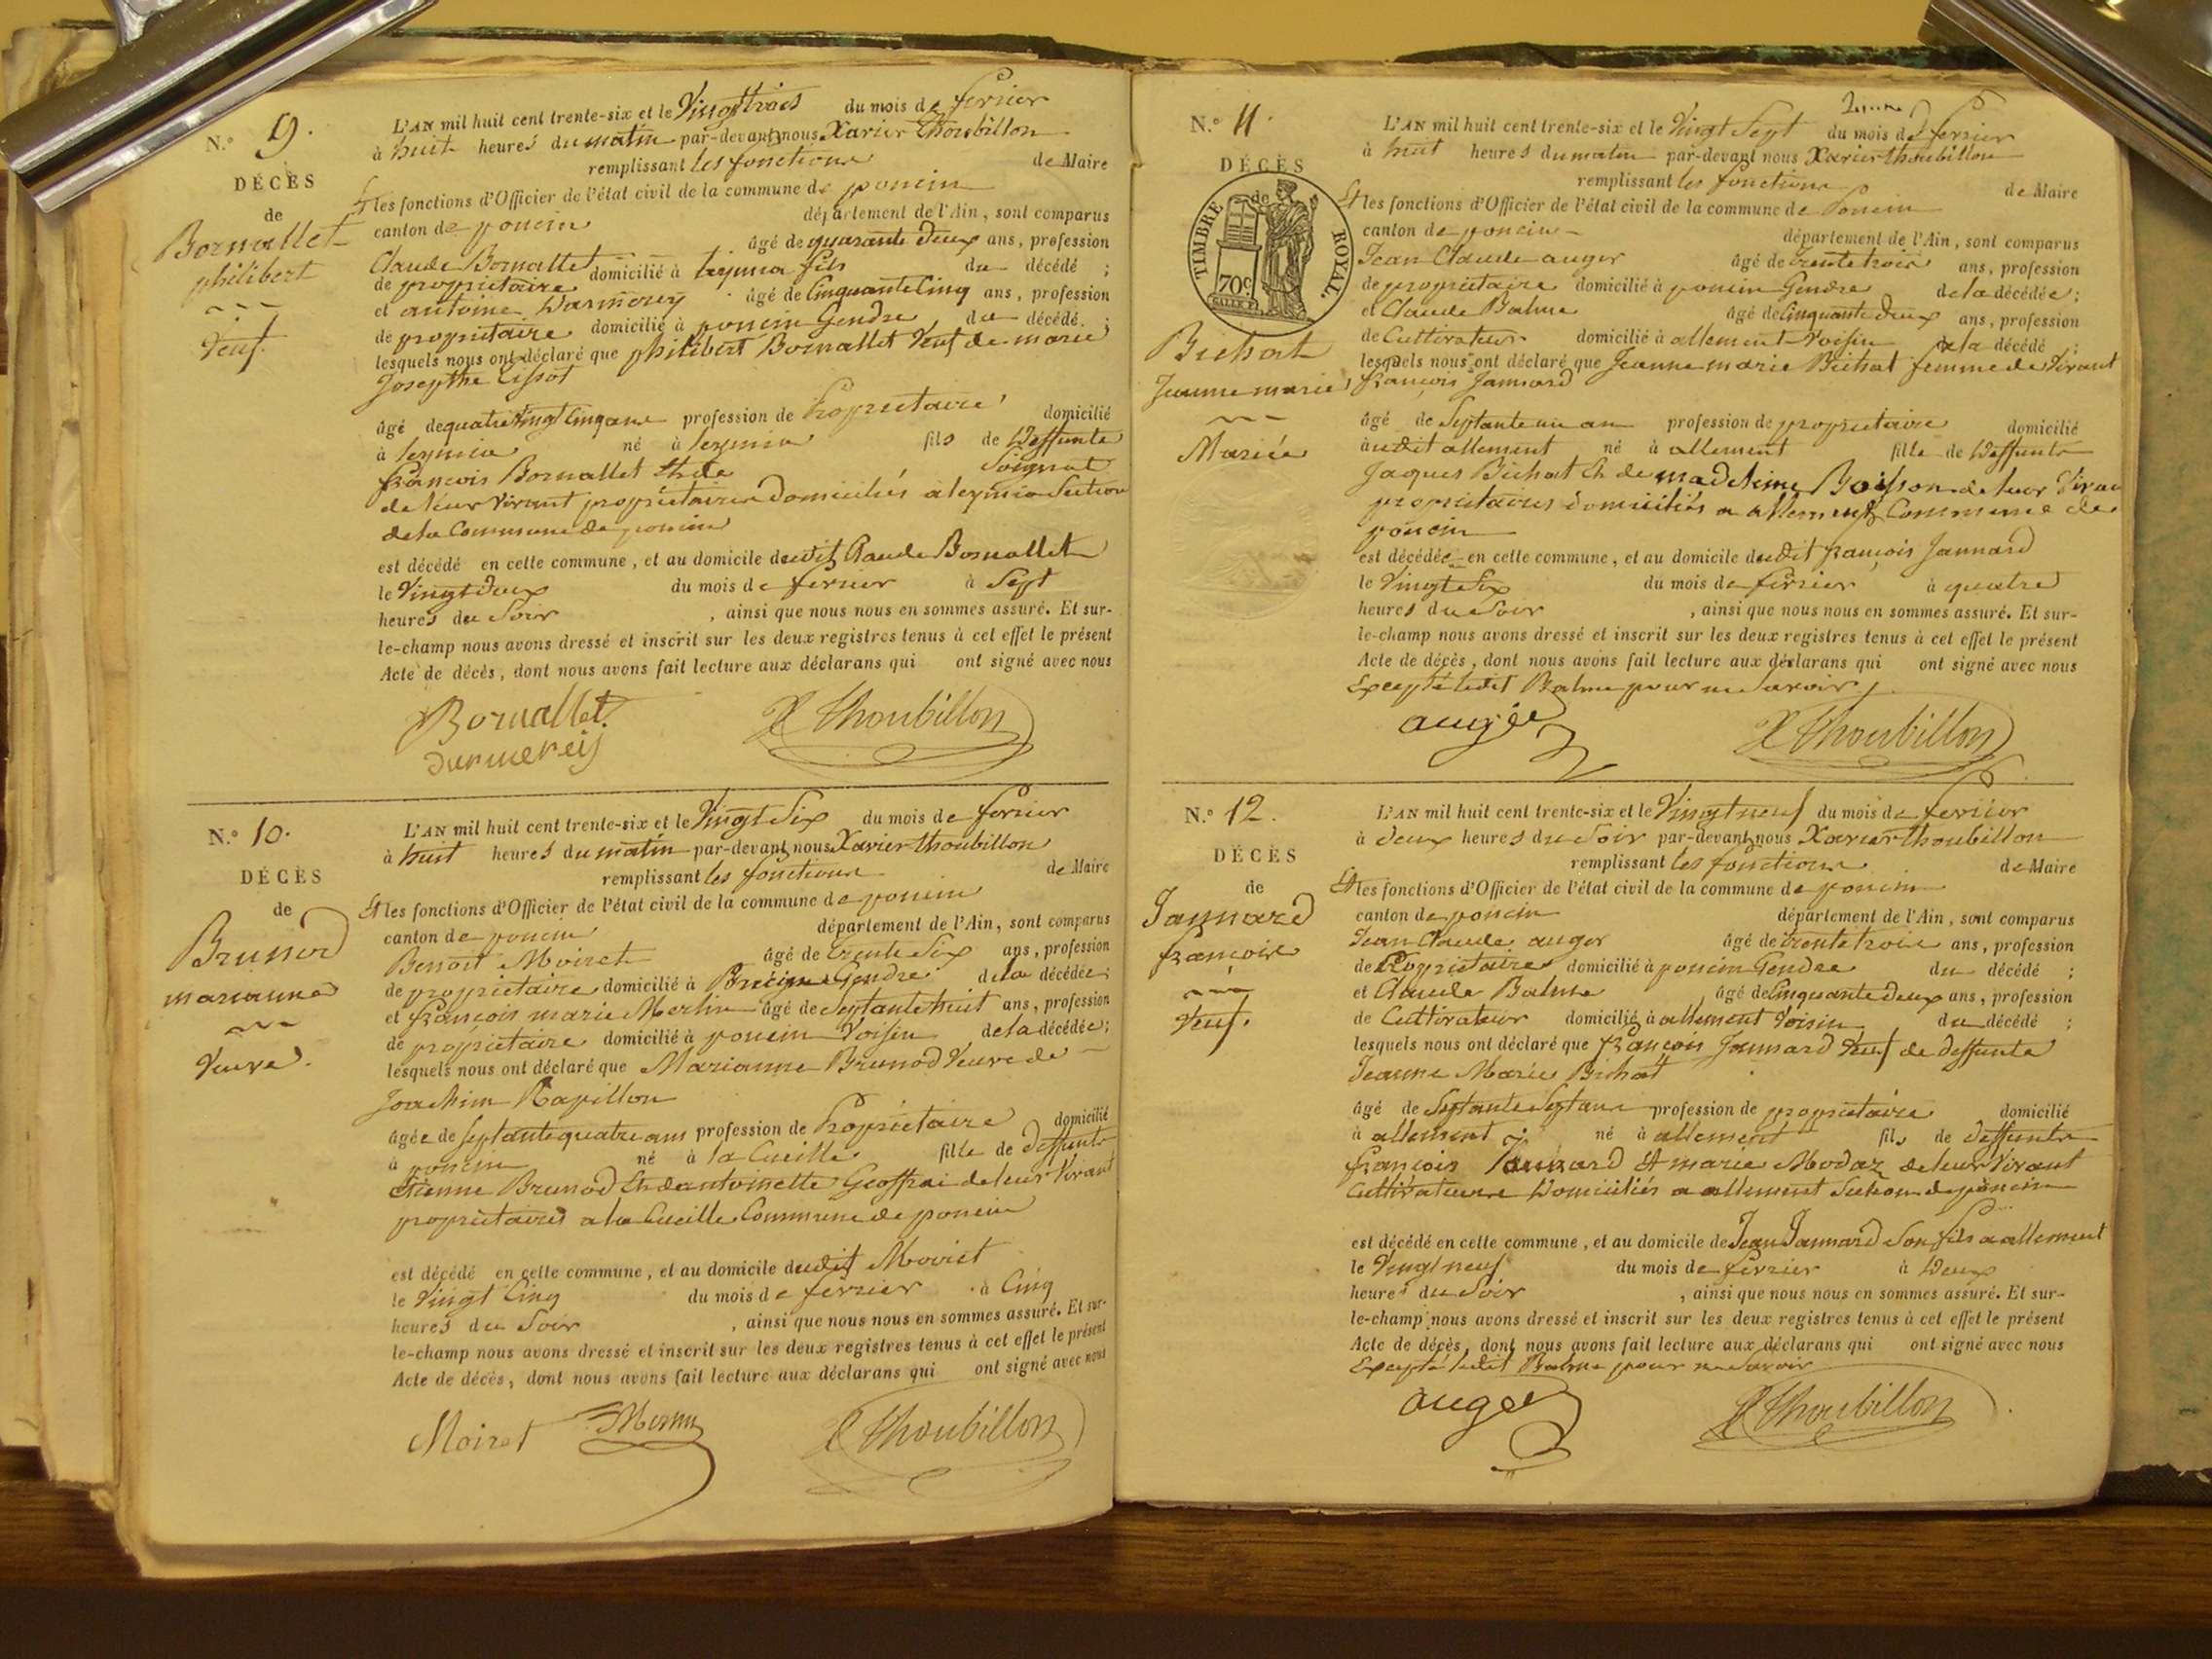 N.º 9.
DÉCÈS
de
Bornallet
philibert
Veuf.
L'AN mil huit cent trente-six et le Vingt trois du mois de fevrier
à huit heures du matin par-devant nous Xavier Thoubillon
remplissant les fonctions de Maire
Et les fonctions d'Officier de l'état civil de la commune de poncin
canton de poncin département de l'Ain, sont comparus
Claude Bornallet âgé de quarante deux ans, profession
de proprietaire domicilié à leymia fils du décédé ;
et antoine Darmerey âgé de Cinquante Cinq ans, profession
de proprietaire domicilié à poncin Gendre du décédé. ;
lesquels nous ont déclaré que philibert Bornallet Veuf de marie
Josephte
âgé de quatre Vingt Cinq ans profession de Proprietaire domicilié
à leymia né à leymia fils de Deffunts
françois Bornallet Et de Soignat
de leur Vivant proprietaires Domiciliés a leymia Section
de la Commune de poncin
est décédé en cette commune, et au domicile dudit Claude Bornallet
le Vingt deux du mois de fevrier à Sept
heures du Soir , ainsi que nous nous en sommes assuré. Et sur-
le-champ nous avons dressé et inscrit sur les deux registres tenus à cet effet le présent
Acte de décès, dont nous avons fait lecture aux déclarans qui ont signé avec nous
Bornallet
Darmerey
X Thoubillon
N.º 10.
DÉCÈS
de
Brunod
marianne
Veuve.
L'AN mil huit cent trente-six et le Vingt Six du mois de fevrier
à huit heures du matin par-devant nous Xavier Thoubillon
remplissant les fonctions de Maire
Et les fonctions d'Officier de l'état civil de la commune de poncin
canton de poncin département de l'Ain, sont comparus
Benoit Moiret âgé de trente Six ans, profession
de proprietaire domicilié à Gendre de la décédée;
et françois marie Merlin âgé de Septante huit ans, profession
de proprietaire domicilié à poncin Voisin de la décédée;
lesquels nous ont déclaré que Marianne Brunod Veuve de
Joachim Ravillon
âgée de Septante quatre ans profession de Proprietaire domicilié
à poncin né à la Cueille fille de deffunts
Etienne Brunod Et de antoinette Geoffrai de leur Vivant
proprietaires a la Cueille Commune de poncin
est décédé en cette commune, et au domicile dudit Moiret
le Vingt Cinq du mois de fevrier à Cinq
heures du Soir , ainsi que nous nous en sommes assuré. Et sur-
le-champ nous avons dressé et inscrit sur les deux registres tenus à cet effet le présent
Acte de décès, dont nous avons fait lecture aux déclarans qui ont signé avec nous
Moiret
X Thoubillon
N.º 11.
DÉCÈS
de
TIMBRE ROYAL.
70c
Bichat
Jeanne marie
Mariée
L'AN mil huit cent trente-six et le Vingt Sept du mois de fevrier
à huit heures du matin par-devant nous Xavier Thoubillon
remplissant les fonctions de Maire
Et les fonctions d'Officier de l'état civil de la commune de Poncin
canton de poncin département de l'Ain, sont comparus
Jean Claude auger âgé de trente trois ans, profession
de proprietaire domicilié à poncin Gendre de la décédée;
et Claude Balme âgé de Cinquante deux ans, profession
de Cultivateur domicilié à allement Voisin de la décédé ;
lesquels nous ont déclaré que Jeanne marie Bichat femme de Vivant
françois Jannard
âgé de Septante un an profession de proprietaire domicilié
audit allement né à allement fille de Deffunts
Jaques Bichat Et de madeleine Boisson de leur Vivan
proprietaires domiciliés a allement Commune de
poncin
est décédée en cette commune, et au domicile dudit françois Jannard
le Vingt Six du mois de fevrier à quatre
heures du Soir , ainsi que nous nous en sommes assuré. Et sur-
le-champ nous avons dressé et inscrit sur les deux registres tenus à cet effet le présent
Acte de décès, dont nous avons fait lecture aux déclarans qui ont signé avec nous
Excepté ledit Balme pour ne Savoir
auger
X Thoubillon
N.º 12.
DÉCÈS
de
Jannard
françois
Veuf.
L'AN mil huit cent trente-six et le Vingt neuf du mois de fevrier
à deux heures du Soir par-devant nous Xavier Thoubillon
remplissant les fonctions de Maire
Et les fonctions d'Officier de l'état civil de la commune de poncin
canton de poncin département de l'Ain, sont comparus
Jean Claude auger âgé de trente trois ans, profession
de Proprietaire domicilié à poncin Gendre du décédé ;
et Claude Balme âgé de Cinquante deux ans, profession
de Cultivateur domicilié à allement Voisin du décédé ;
lesquels nous ont déclaré que françois Jannard Veuf de deffunte
Jeanne Marie Bichat
âgé de Septante Sept ans profession de proprietaire domicilié
à allement né à allement fils de deffunts
françois Jannard Et marie Modaz de leur Vivant
Cultivateurs Domiciliés a allement Section de poncin
est décédé en cette commune, et au domicile de Jean Jannard Son fils a allement
le Vingt neuf du mois de fevrier à Deux
heures du Soir , ainsi que nous nous en sommes assuré. Et sur-
le-champ nous avons dressé et inscrit sur les deux registres tenus à cet effet le présent
Acte de décès, dont nous avons fait lecture aux déclarans qui ont signé avec nous
Excepté ledit Balme pour ne Savoir
auger
X Thoubillon